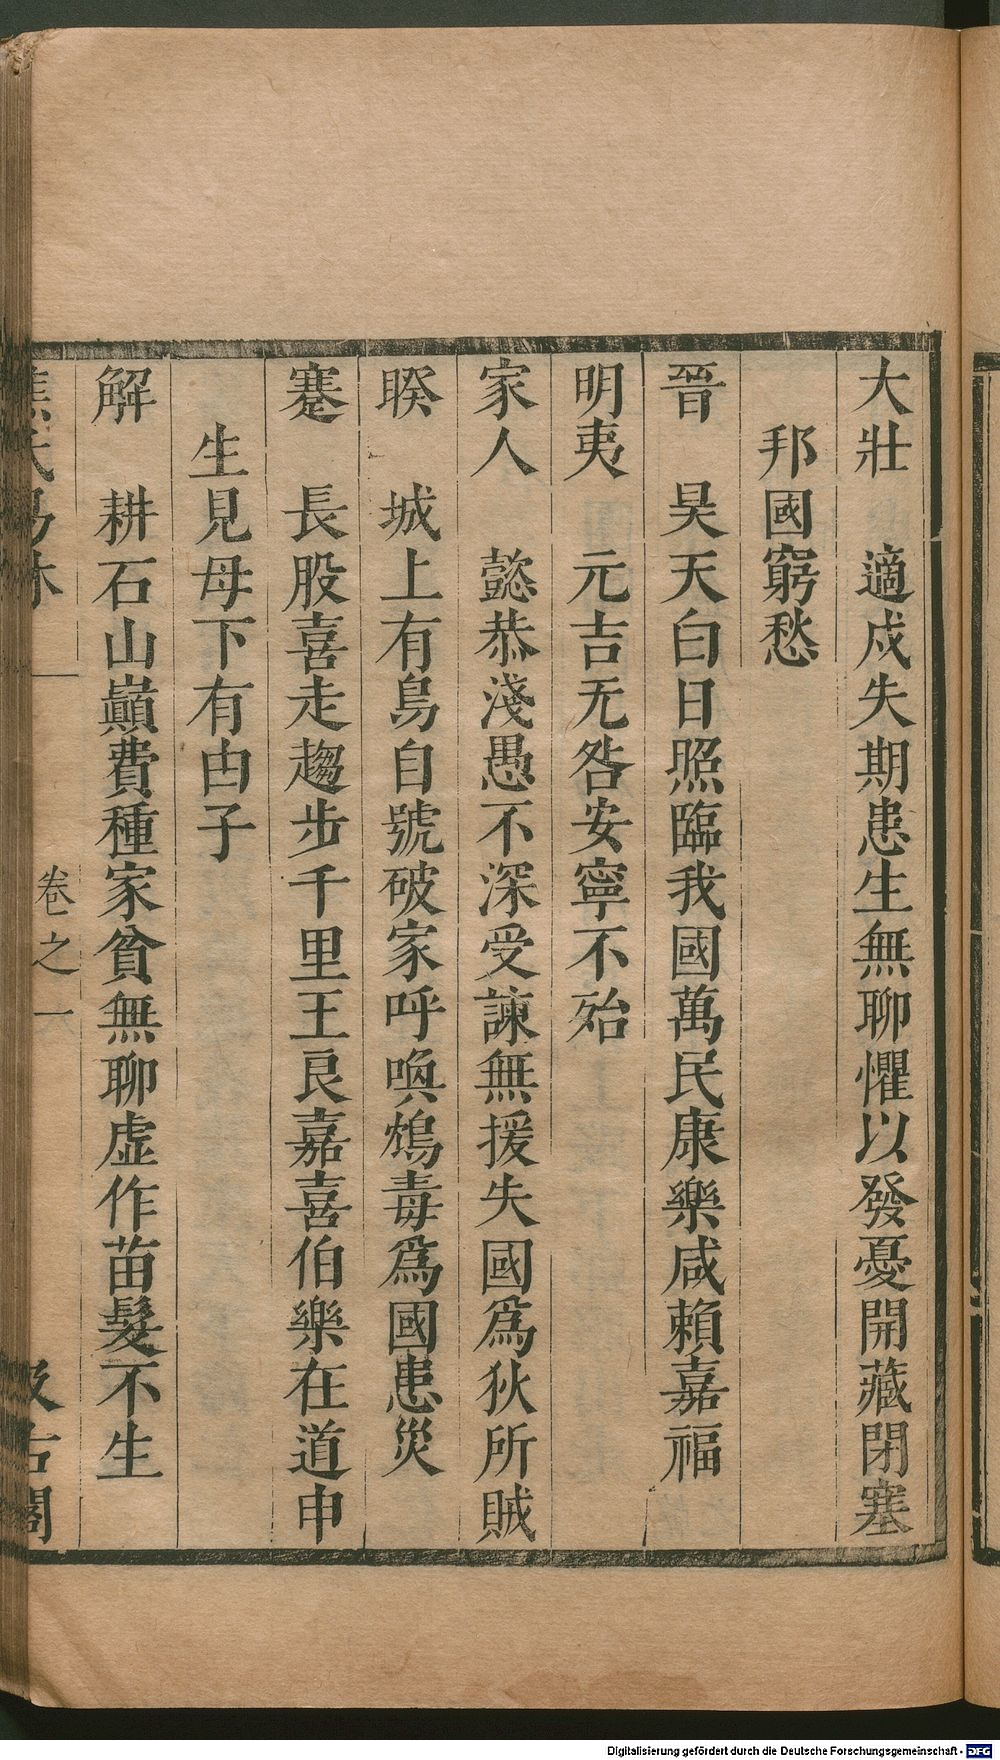 大壯　適戍失期患生無聊懼以發憂開藏閉塞
邦國窮愁
晉　昊天白日照臨我國萬民康樂咸賴嘉福
明夷　元吉无咎安寧不殆
家人　懿恭淺愚不深受諫無援失國爲狄所賊
睽　城上有烏自號破家呼喚鴆毒爲國患災
蹇　長股喜走趨步千里王良嘉喜伯樂在道申
生見母下有由子
解　耕石山巔費種家貧無聊虛作苗髮不生
焦氏易林　卷之六　汲古閣
Digitalisierung gefördert durch die Deutsche Forschungsgemeinschaft - DFG